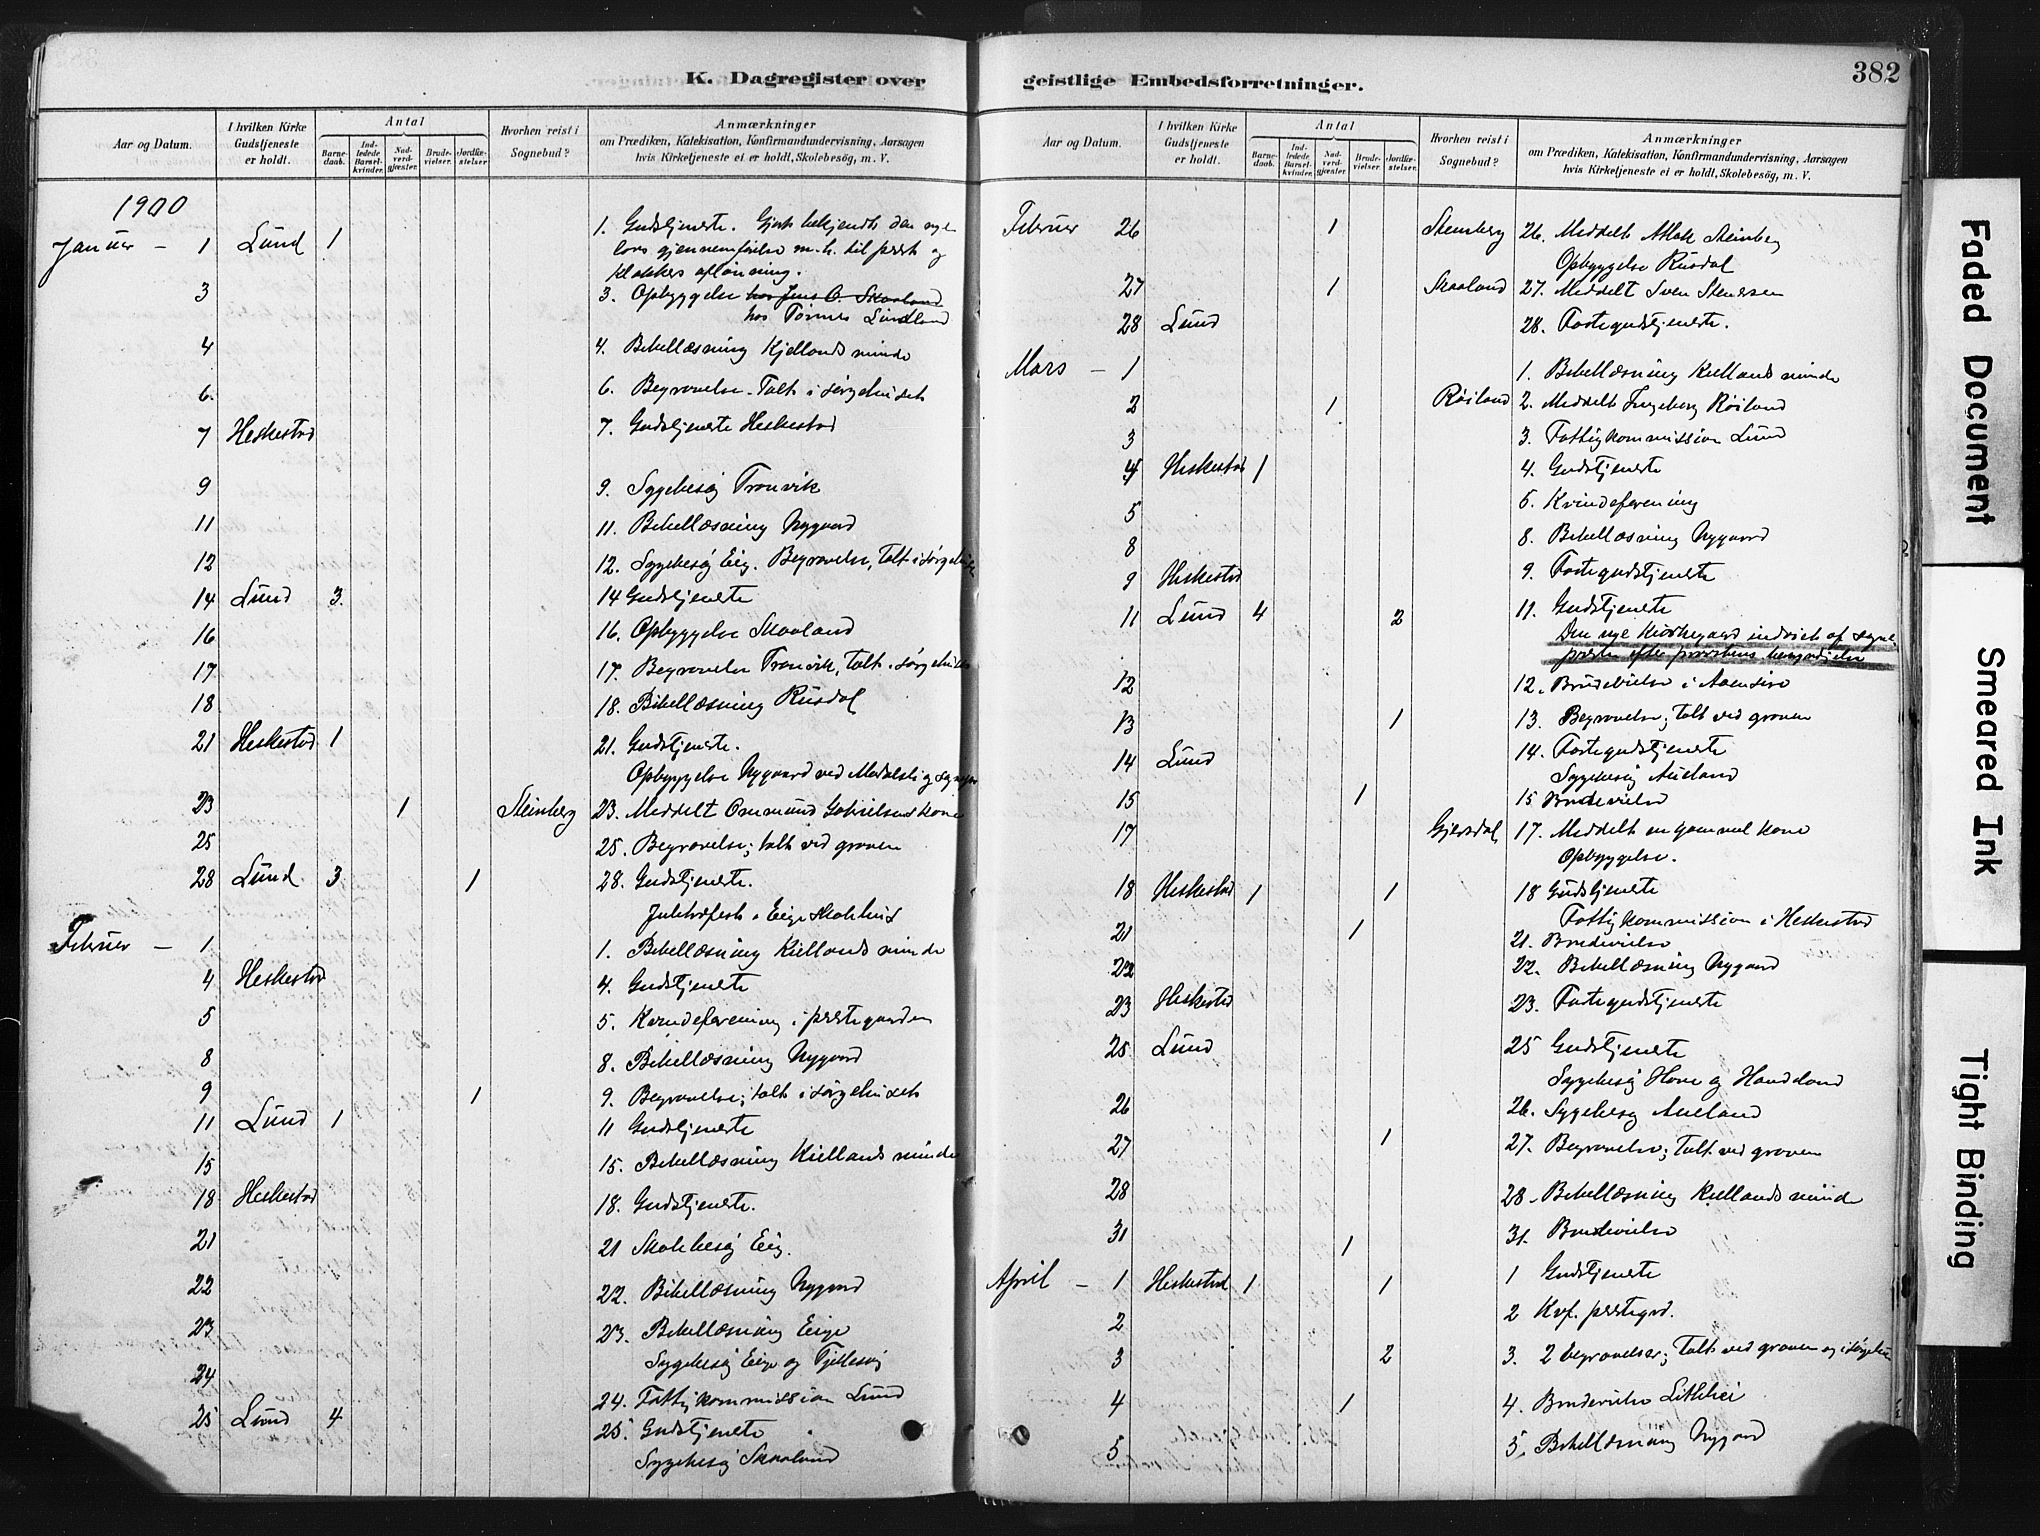 K. Dagregister over
Aar og Datum.
I hvilken Kirke Gudstjeneste er holdt.
Antal
Barnedaab.
Indledede Barselkvinder.
Nadverdgjæster.
Brudevielser.
Jordfæstelser.
Hvorhen reist i Sognebud?
Anmærkninger
om Prædiken, Katekisation, Konfirmandundervisning, Aarsagen
hvis Kirketjeneste ei er holdt, Skolebesög, m. V.
1900
Januer – 1 Lund 1 1. Gudstjeneste. Gjort bekjendt den nye
lovs gjennemførelse m. h. til prest og
klokkers aflønning.
3 3. Opbyggelse hos Jens O. Skaaland
hos Tønnes Lindland
4 4. Bibellæsning Kjellands minde
6. 6. Begravelse. Talt i sørgehuset
7 Heskestad 7. Gudstjeneste Heskestad
9 9. Sygebesøg Tronvik
11 11. Bibellæsning Nygaard
12 12. Sygebesøg Eig. Begravelse, talt i sørgehuset
14 Lund 3. 14 Gudstjeneste
16 16. Opbyggelse Skaaland
17 17. Begravelse Tronvik, talt i sørgehuset
18 18. Bibellæsning Rusdal
21 Heskestad 1 21. Gudstjeneste.
Opbyggelse Nygaard ved
23 1 Steinberg 23. Meddelt Ommund Gabrielsens kone
25 25. Begravelse; talt ved graven
28 Lund. 3 1 28. Gudstjeneste.
Juletræfest i Eige Skolehus
Februer – 1. 1. Bibellæsning Kiellands minde
4 Heskestad 4. Gudstjeneste
5 5. Kvindeforening i prestegaarden
8 8. Bibellæsning Nygaard
9 1 9. Begravelse; talt i sørgehuset
11 Lund 1 11 Gudstjeneste
15 15. Bibellæsning Kiellands minde
18 Heskestad 18. Gudstjeneste.
21 21 Skolebesøg Eig.
22 22. Bibellæsning Nygaard
23 23. Bibellæsning Eige
Sygebesøg Eige og
24 24. Fattigkommission Lund
25 Lund 4 25. Gudstjeneste
Sygebesøg Skaaland
geistlige Embedsforretninger.
382
Aar og Datum.
I hvilken Kirke Gudstjeneste er holdt.
Antal
Barnedaab.
Indledede Barselkvinder.
Nadverdgjæster.
Brudevielser.
Jordfæstelser.
Hvorhen reist i Sognebud?
Anmærkninger
om Prædiken, Katekisation, Konfirmandundervisning, Aarsagen
hvis Kirketjeneste ei er holdt, Skolebesög, m. V.
Februer 26 1 Steinberg 26. Meddelt Aslak Steinberg
Opbyggelse Rusdal
27 1 Skaaland 27. Meddelt Sven Stensen
28 Lund 28. Fastegudstjeneste.
Mars – 1 1. Bibellæsning Kiellands minde
2 1 Røiland 2. Meddelt Ingeborg Røiland
3 3. Fattigkommission Lund
4 Heskestad 1 4. Gudstjeneste
5 5. Kvindeforening
8 8. Bibellæsning Nygaard
9 Heskestad 9. Fastegudstjeneste
11 Lund 4 2 11. Gudstjeneste
Den nye kirkegaard indviet af sogne-
presten efter provstens bemyndigelse
12 12. Brudevielse i
13 1 13. Begravelse; talt ved graven
14 Lund 14. Fastegudstjeneste
Sygebesøg Aueland
15 1 15 Brudevielse
17 Gjersdal 17. Meddelt en gammel kone
Opbyggelse.
18 Heskestad 1 1 18 Gudstjeneste
Fattigkommission i Heskestad
21 1 21. Brudevielse
22 22. Bibellæsning Nygaard
23 Heskestad 23. Fastegudstjeneste
25 Lund 25 Gudstjeneste
Sygebesøg Hove og Haudeland
26 26. Sygebesøg Aueland
27 1 27. Begravelse; talt ved graven
28 28. Bibellæsning Kiellands minde
31 1 31. Brudevielse
April – 1 Heskestad 1 1 1 Gudstjeneste
2 2 Kvf. prestegrd.
3 2 3. 2 begravelser; talt ved graven og i sørgehuset
4 1 4. Brudevielse
5 5. Bibellæsning Nygaard
Faded Document
Smeared Ink
Tight Binding